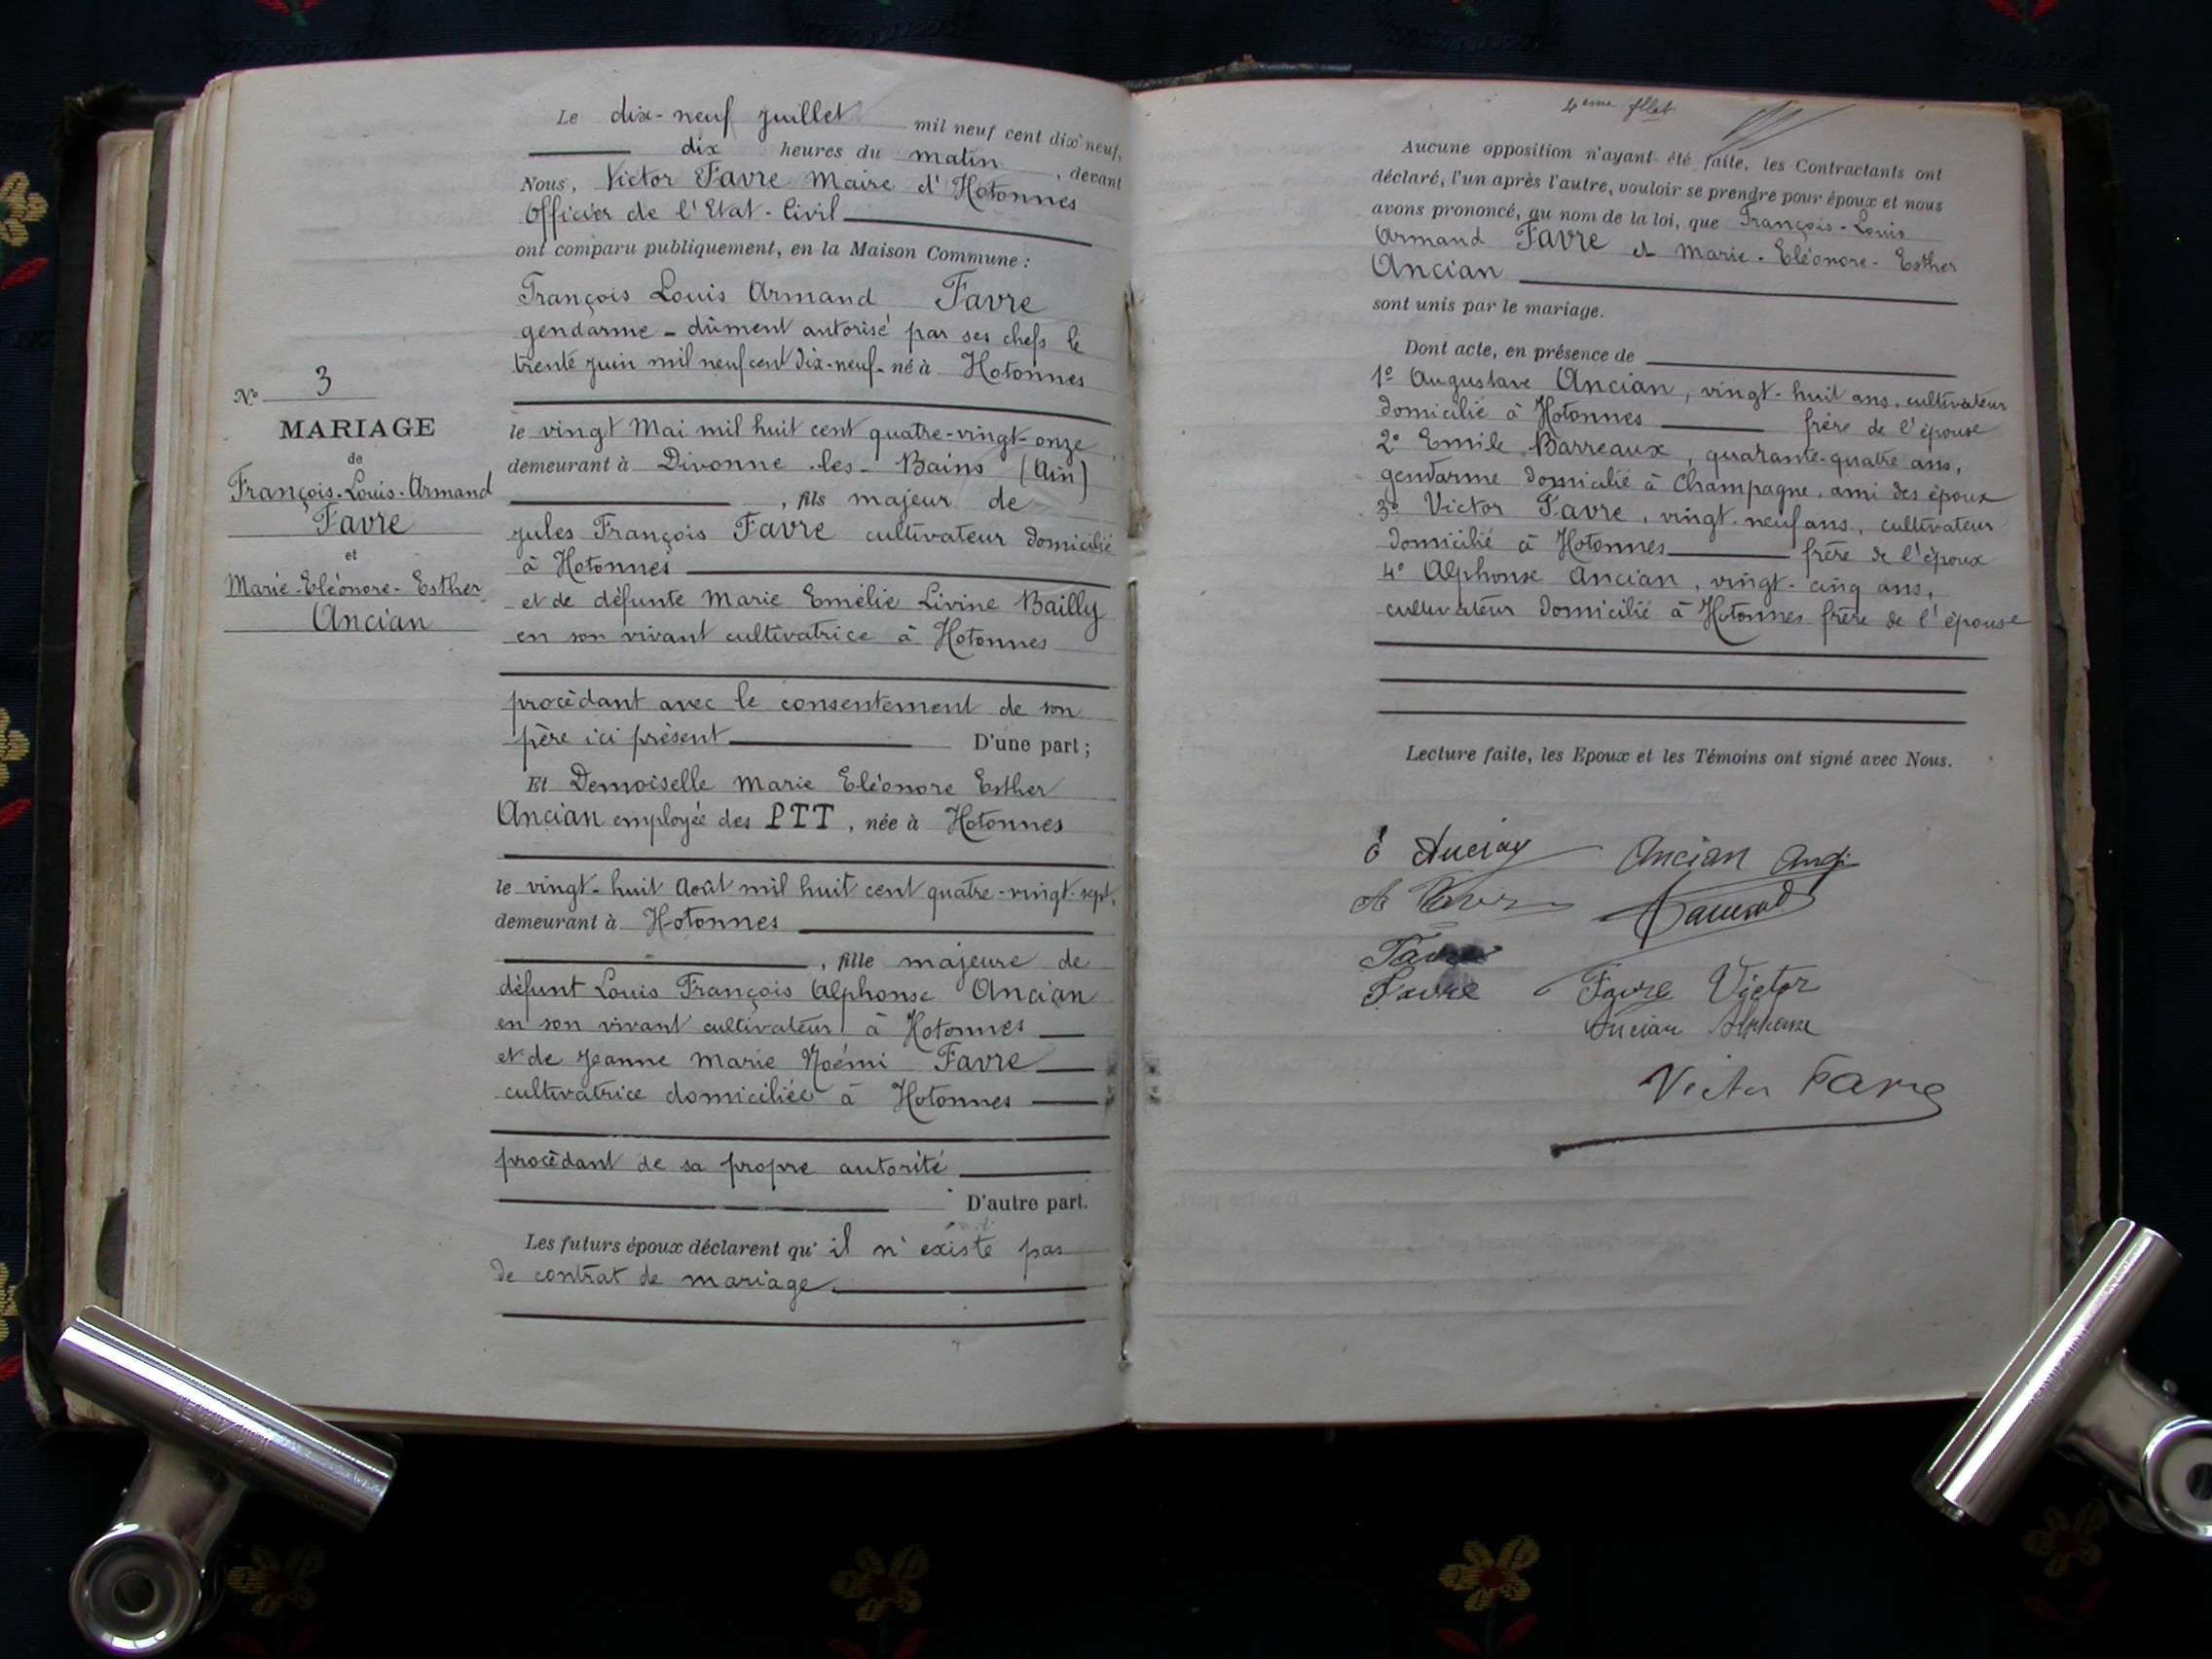 N° 3
MARIAGE
de
François-Louis-Armand
Favre
et
Marie-Eléonore-Esther
Ancian
Le dix-neuf juillet mil neuf cent dix-neuf,
dix heures du matin, devant
Nous, Victor Favre Maire d'Hotonnes
Officier de l'Etat-Civil
ont comparu publiquement, en la Maison Commune :
François Louis Armand Favre
gendarme - dûment autorisé par ses chefs le
trente juin mil neuf cent dix-neuf - né à Hotonnes
le vingt Mai mil huit cent quatre-vingt-onze
demeurant à Divonne-les-Bains (Ain)
, fils majeur de
Jules François Favre cultivateur domicilié
à Hotonnes
et de défunte Marie Emélie Livine Bailly
en son vivant cultivatrice à Hotonnes
procédant avec le consentement de son
père ici présent D'une part ;
Et Demoiselle Marie Eléonore Esther
Ancian employée des PTT, née à Hotonnes
le vingt-huit Août mil huit cent quatre-vingt-sept,
demeurant à Hotonnes
, fille majeure de
défunt Louis François Alphonse Ancian
en son vivant cultivateur à Hotonnes
et de Jeanne Marie Noémi Favre
cultivatrice domiciliée à Hotonnes
procédant de sa propre autorité
D'autre part.
Les futurs époux déclarent qu'il n'existe pas
de contrat de mariage
4eme fllet
Aucune opposition n'ayant été faite, les Contractants ont
déclaré, l'un après l'autre, vouloir se prendre pour époux et nous
avons prononcé, au nom de la loi, que François-Louis
Armand Favre et Marie-Eléonore-Esther
Ancian
sont unis par le mariage.
Dont acte, en présence de
1° Augustave Ancian, vingt-huit ans, cultivateur
domicilié à Hotonnes frère de l'épouse
2° Emile Barreaux, quarante-quatre ans,
gendarme domicilié à Champagne, ami des époux
3° Victor Favre, vingt-neuf ans, cultivateur
domicilié à Hotonnes frère de l'époux
4° Alphonse Ancian, vingt-cinq ans,
cultivateur domicilié à Hotonnes frère de l'épouse
Lecture faite, les Epoux et les Témoins ont signé avec Nous.
E Ancian Ancian Aug
A Favre
Favre
Favre Favre Victor
Ancian Alphonse
Victor Favre